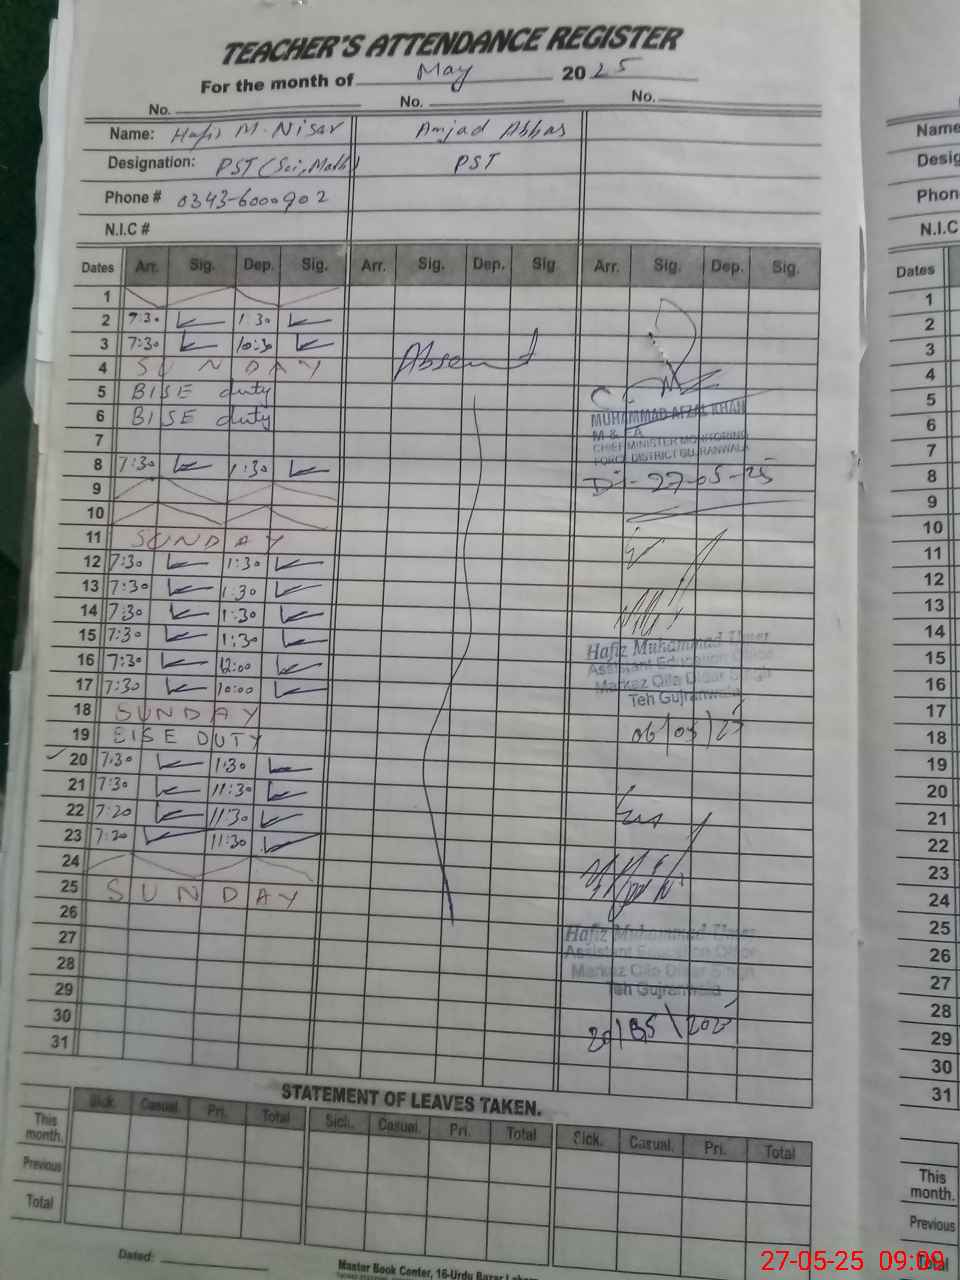 TEACHER'S ATTENDANCE REGISTER
For the month of May 2025
No. No. No.
Name: Hafiz M. Nisar Amjad Abbas
Designation: PST (Sci, Math) PST
Phone # 0343-6000902
N.I.C #
Dates Arr. Sig. Dep. Sig. Arr. Sig. Dep. Sig Arr. Sig. Dep. Sig.
1
2 7:30 1:30
3 7:30 10:30
4 SUNDAY Absent
5 BISE duty
6 BISE duty MUHAMMAD AFZAL KHAN
7 M & EA
CHIEF MINISTER MONITORING
FORCE DISTRICT GUJRANWALA
8 7:30 1:30 Dt:- 27-05-25
9
10
11 SUNDAY
12 7:30 1:30
13 7:30 1:30
14 7:30 1:30
15 7:30 1:30 Hafiz Muhammad Umer
16 7:30 12:00 Assistant Education Officer
17 7:30 10:00 Markaz Qila Didar Singh
Teh Gujranwala
18 SUNDAY 06/05/25
19 BISE DUTY
20 7:30 1:30
21 7:30 11:30
22 7:20 11:30
23 7:20 11:30
24
25 SUNDAY
26
27 Hafiz Muhammad Umer
Assistant Education Officer
28 Markaz Qila Didar Singh
29 Teh Gujranwala
30 20/05/2025
31
STATEMENT OF LEAVES TAKEN.
Sick. Casual. Pri. Total Sick. Casual. Pri. Total Sick. Casual. Pri. Total
This month.
Previous
Total
Dated:
Master Book Center, 16-Urdu Bazar
Name
Desig
Phon
N.I.C
Dates
1
2
3
4
5
6
7
8
9
10
11
12
13
14
15
16
17
18
19
20
21
22
23
24
25
26
27
28
29
30
31
This month.
Previous
Total
27-05-25 09:09